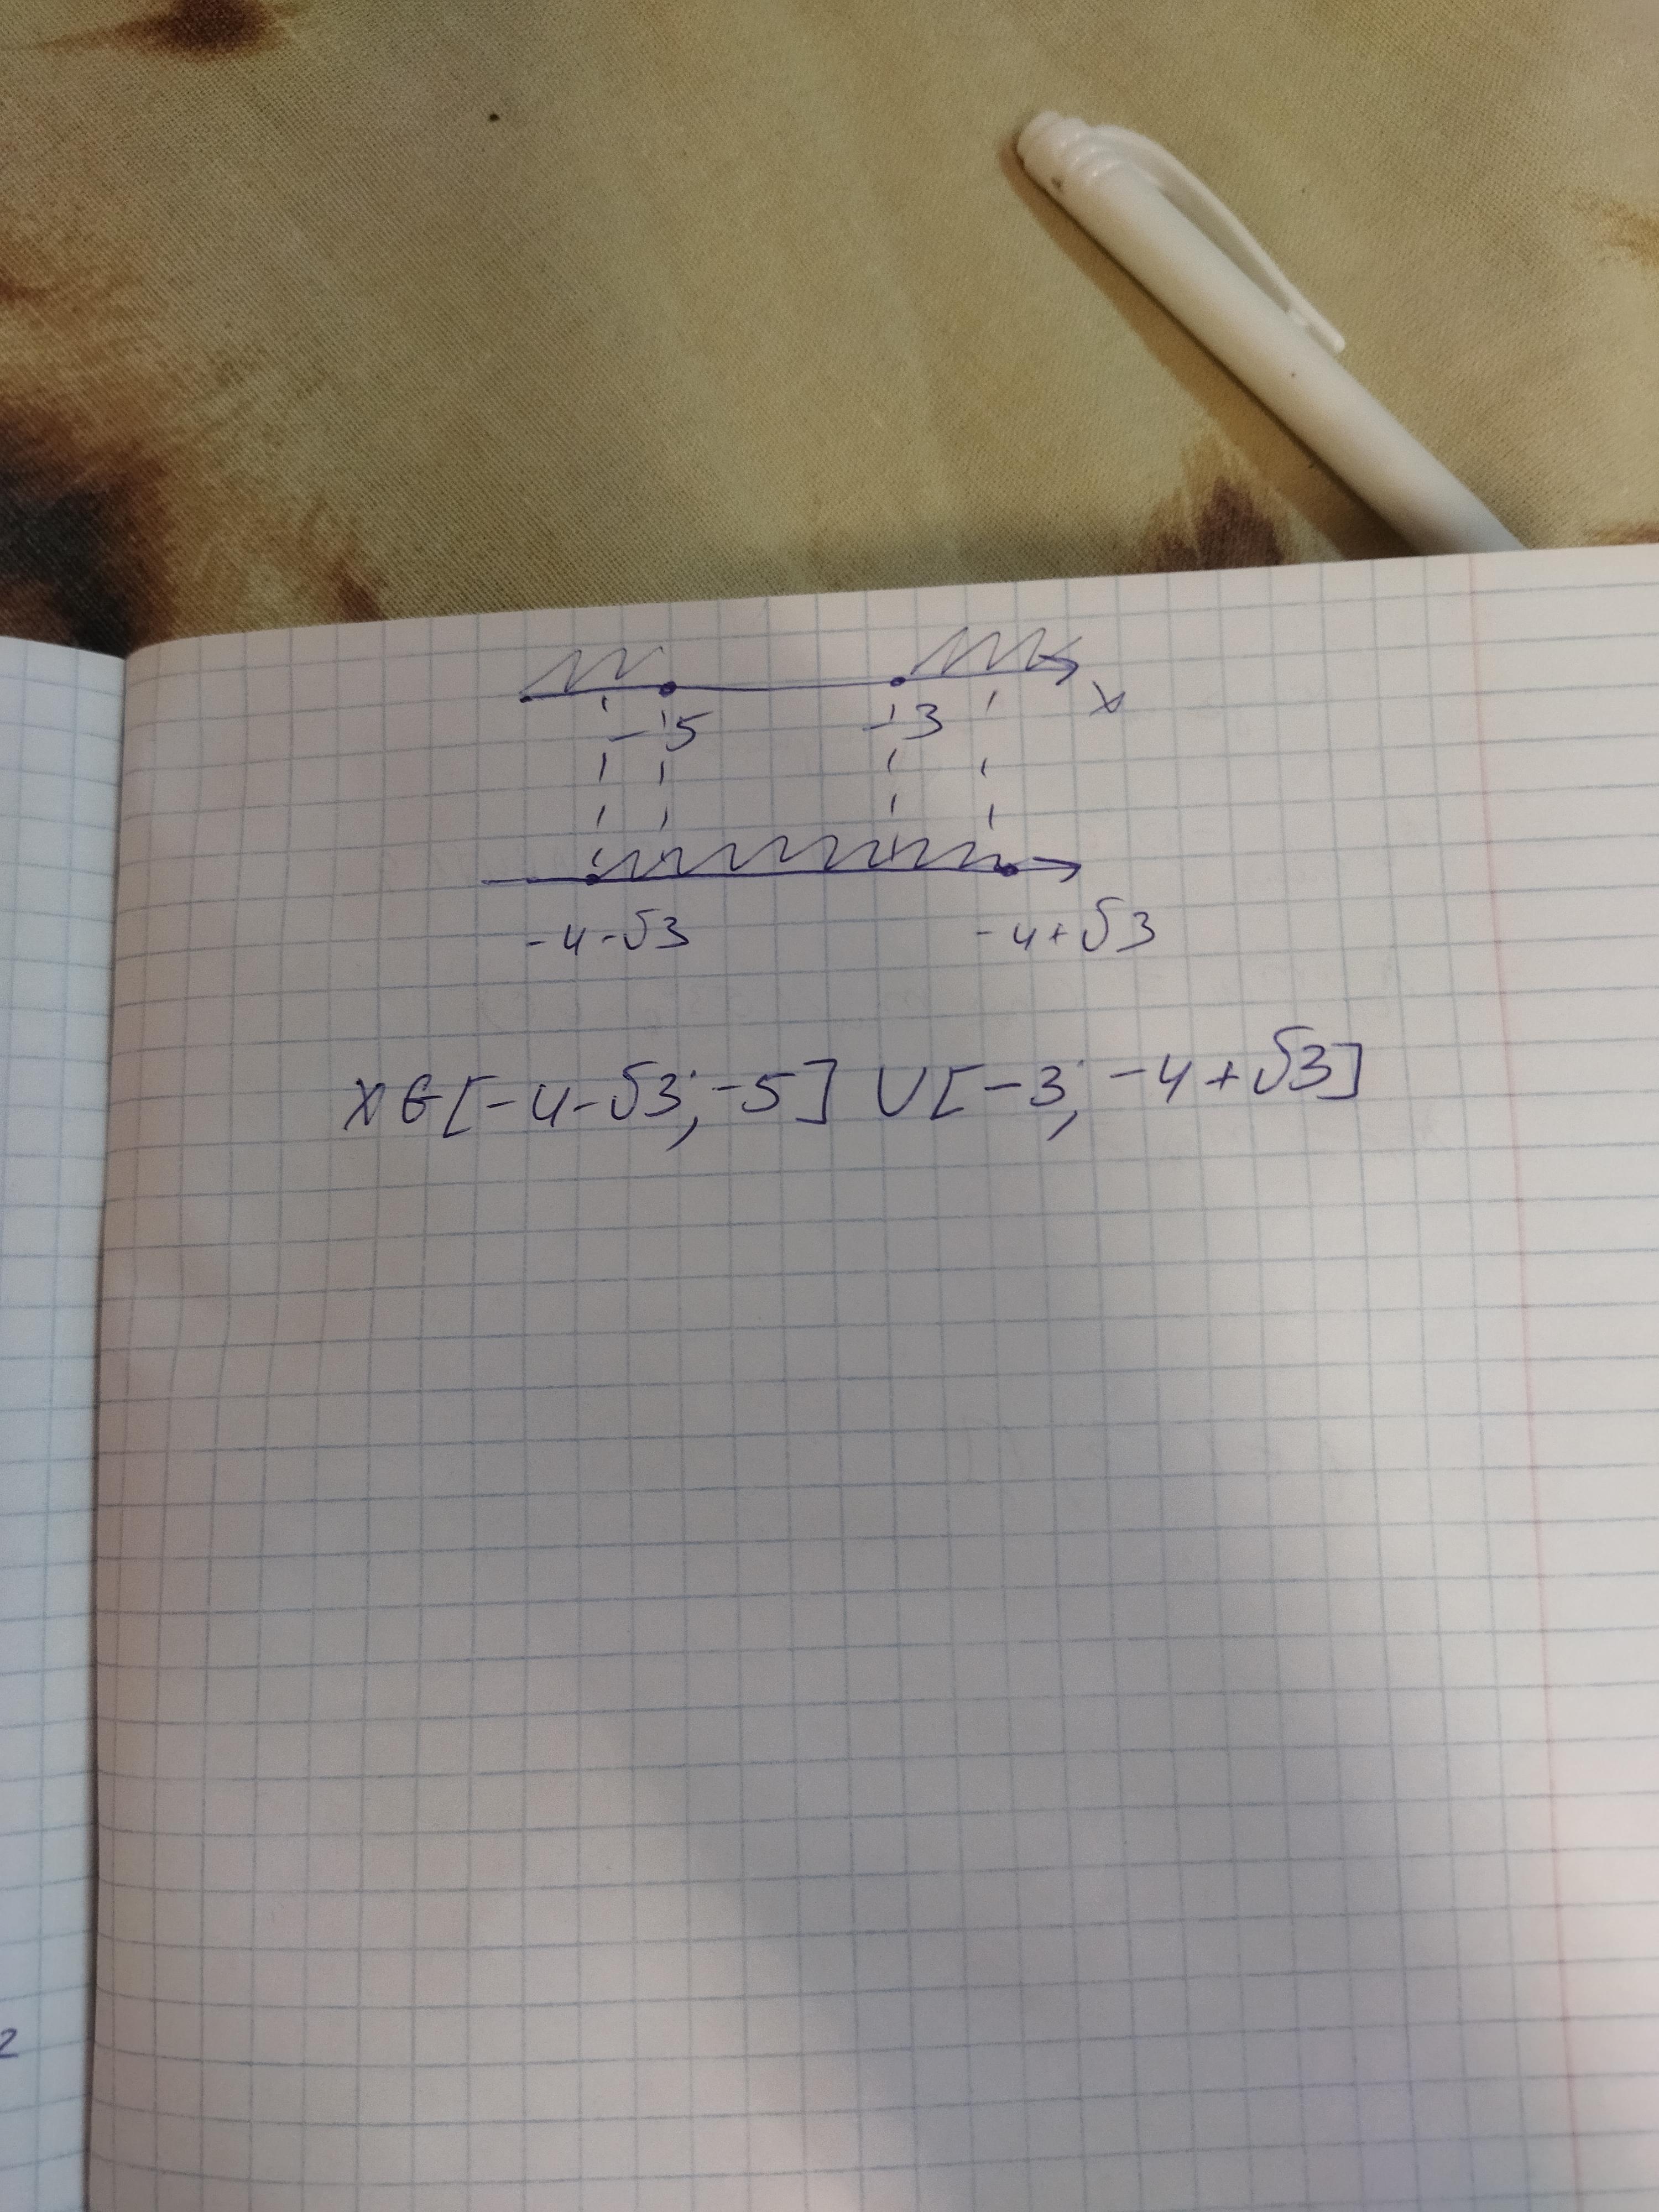 x
-5 -3
-4-√3 -4+√3
x∈[-4-√3;-5]∪[-3;-4+√3]
2